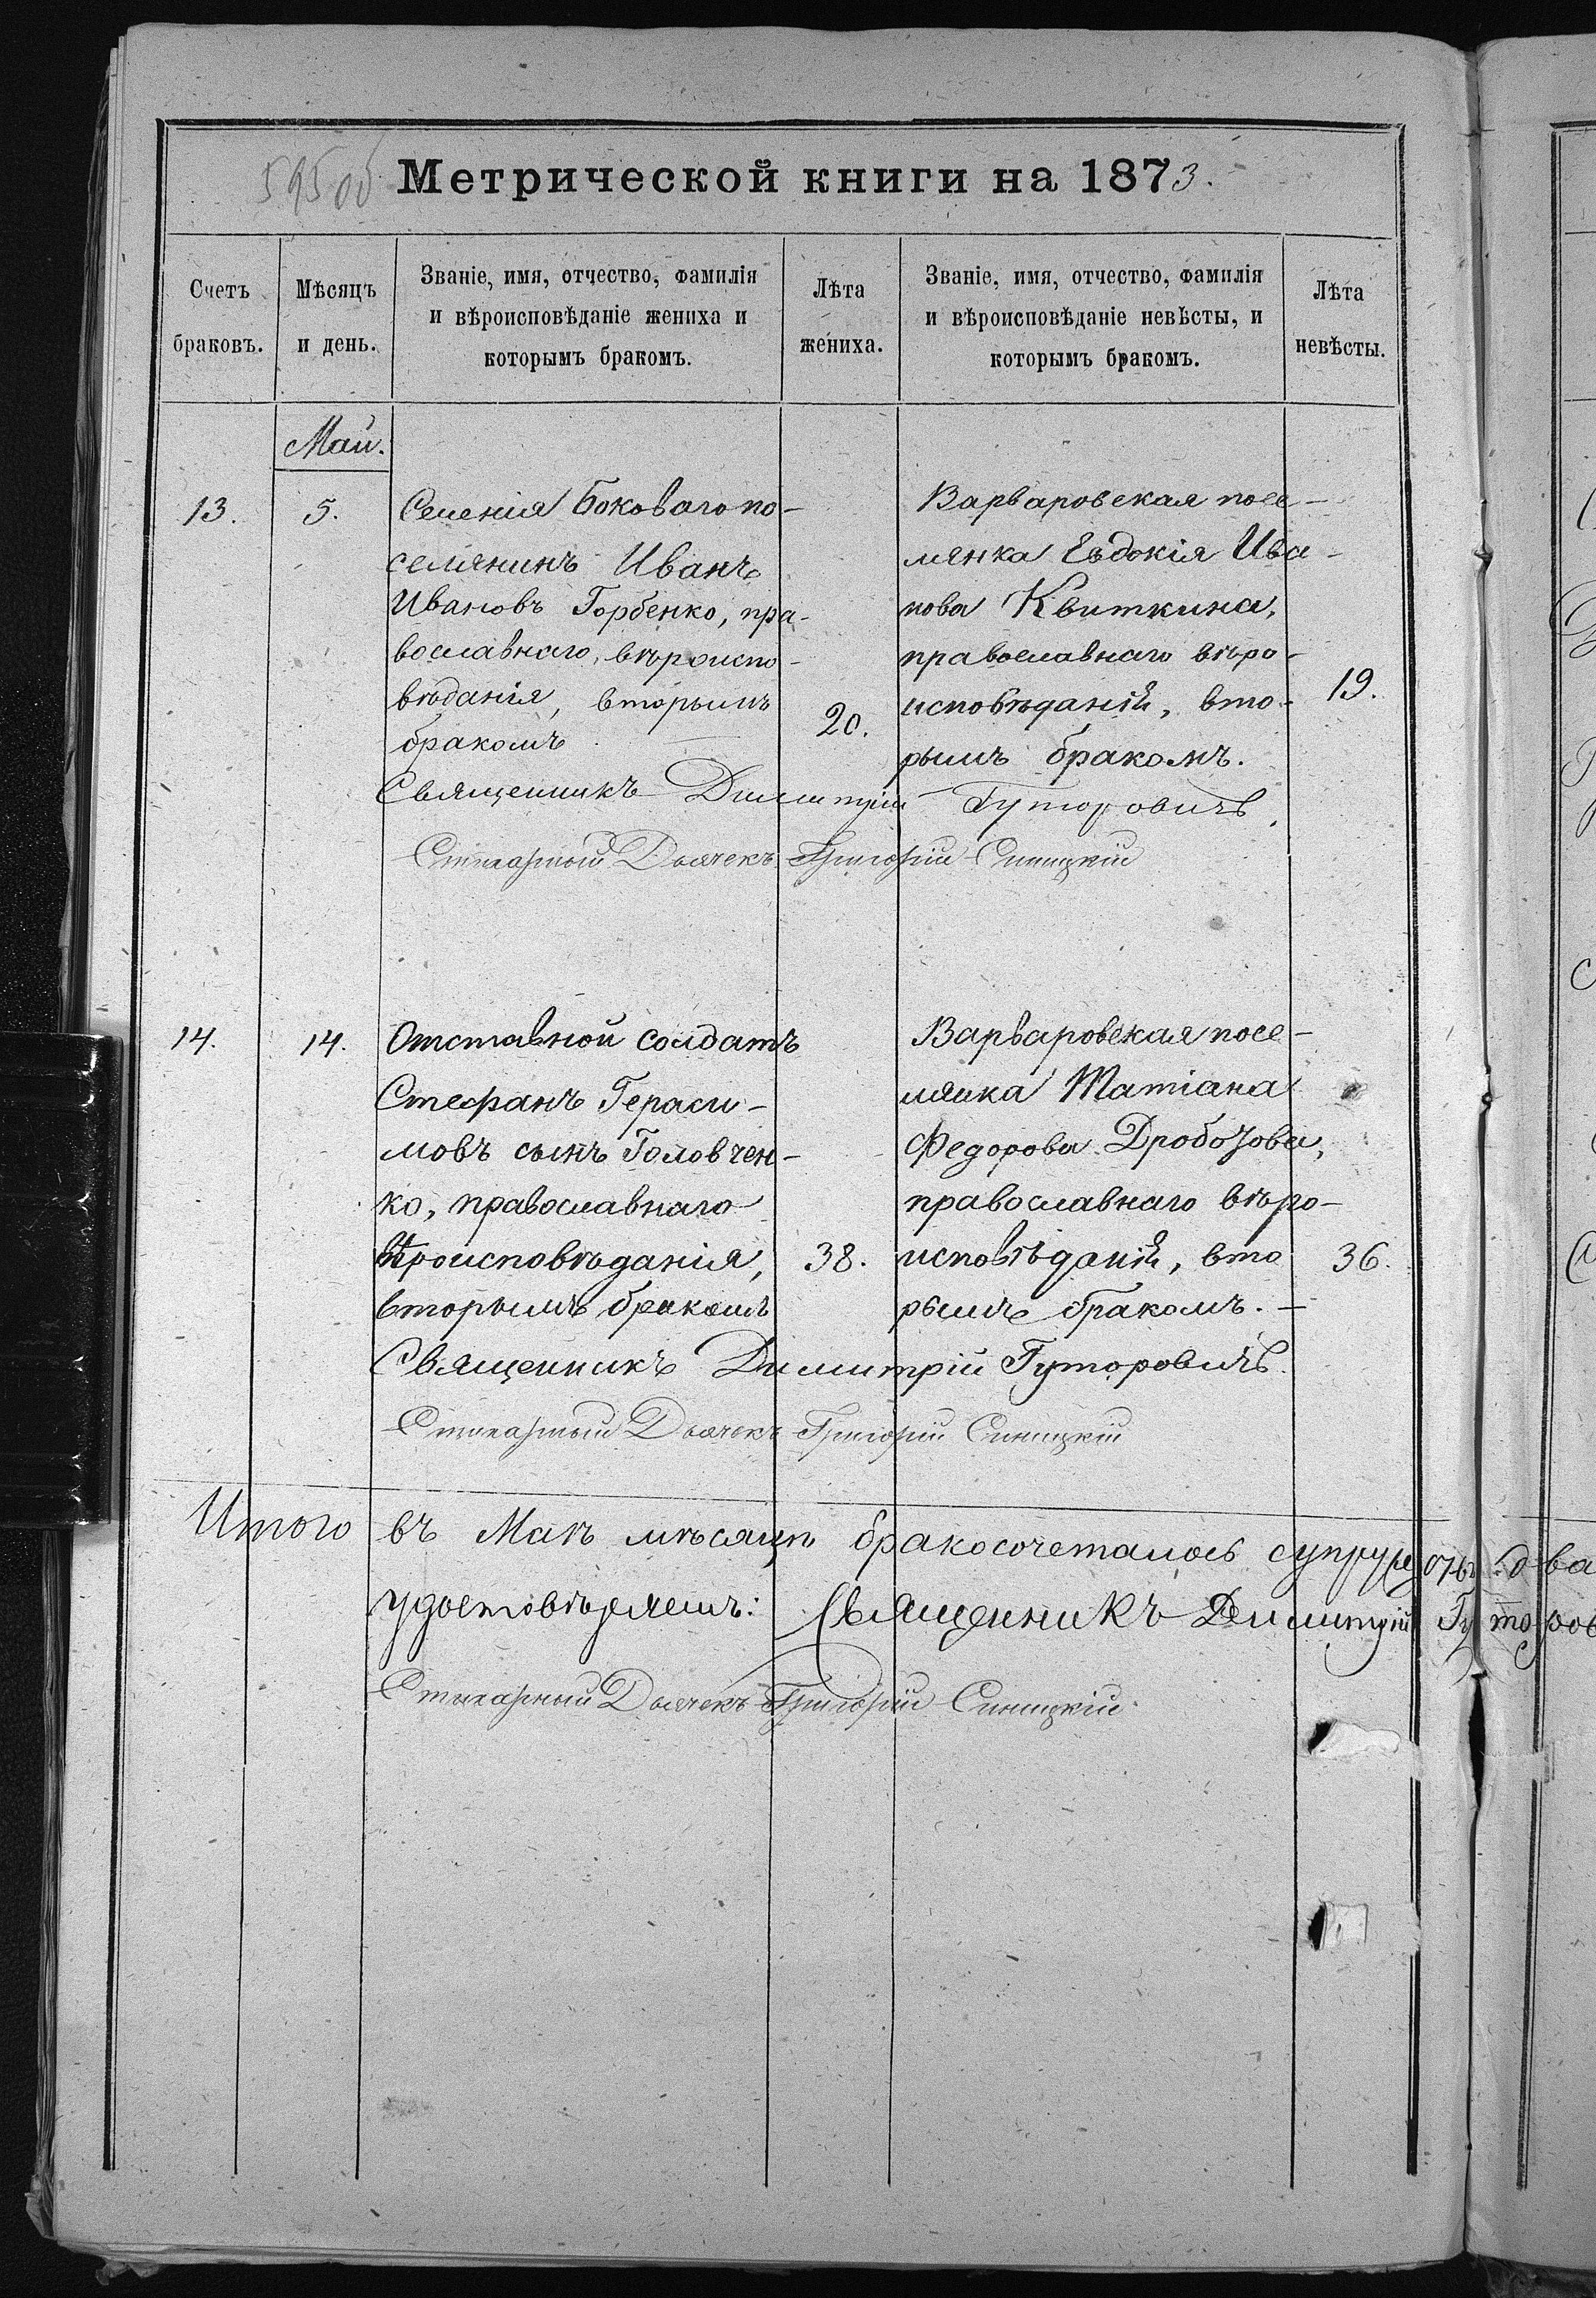 595об Метрической книги на 1873.
Счетъ браковъ.
Мѣсяцъ и день.
Званіе, имя, отчество, фамилія
и вѣроисповѣданіе жениха и
которымъ бракомъ.
Лѣта жениха.
Званіе, имя, отчество, фамилія
и вѣроисповѣданіе невѣсты, и
которымъ бракомъ.
Лѣта невѣсты.
Май.
13.
5.
Селенія Боковаго по-
селянинъ Иванъ
Ивановъ Горбенко, пра-
вославнаго, вѣроиспо-
вѣданія, вторымъ
бракомъ
20.
Варваровская посе-
лянка Евдокія Ива-
нова Квиткина,
православнаго вѣро-
исповѣданія, вто-
рымъ бракомъ.
19.
Священникъ Димитрій Гуторовичъ.
Стихарный Дьячекъ Григорій Синицкій
14.
14.
Отставной солдатъ
Стефанъ Гераси-
мовъ сынъ Головчен-
ко, православнаго
вѣроисповѣданія,
вторымъ бракомъ
38.
Варваровская посе-
лянка Татіана
Федорова Дробозова,
православнаго вѣро-
исповѣданія, вто
рымъ бракомъ. —
36.
Священникъ Димитрій Гуторовичъ.
Стихарный Дьячекъ Григорій Синицкій
Итого въ Маѣ мѣсяцѣ бракосочеталось супружествъ два
удостовѣряемъ: Священникъ Димитрій Гуторов
Стихарный Дьячекъ Григорій Синицкій